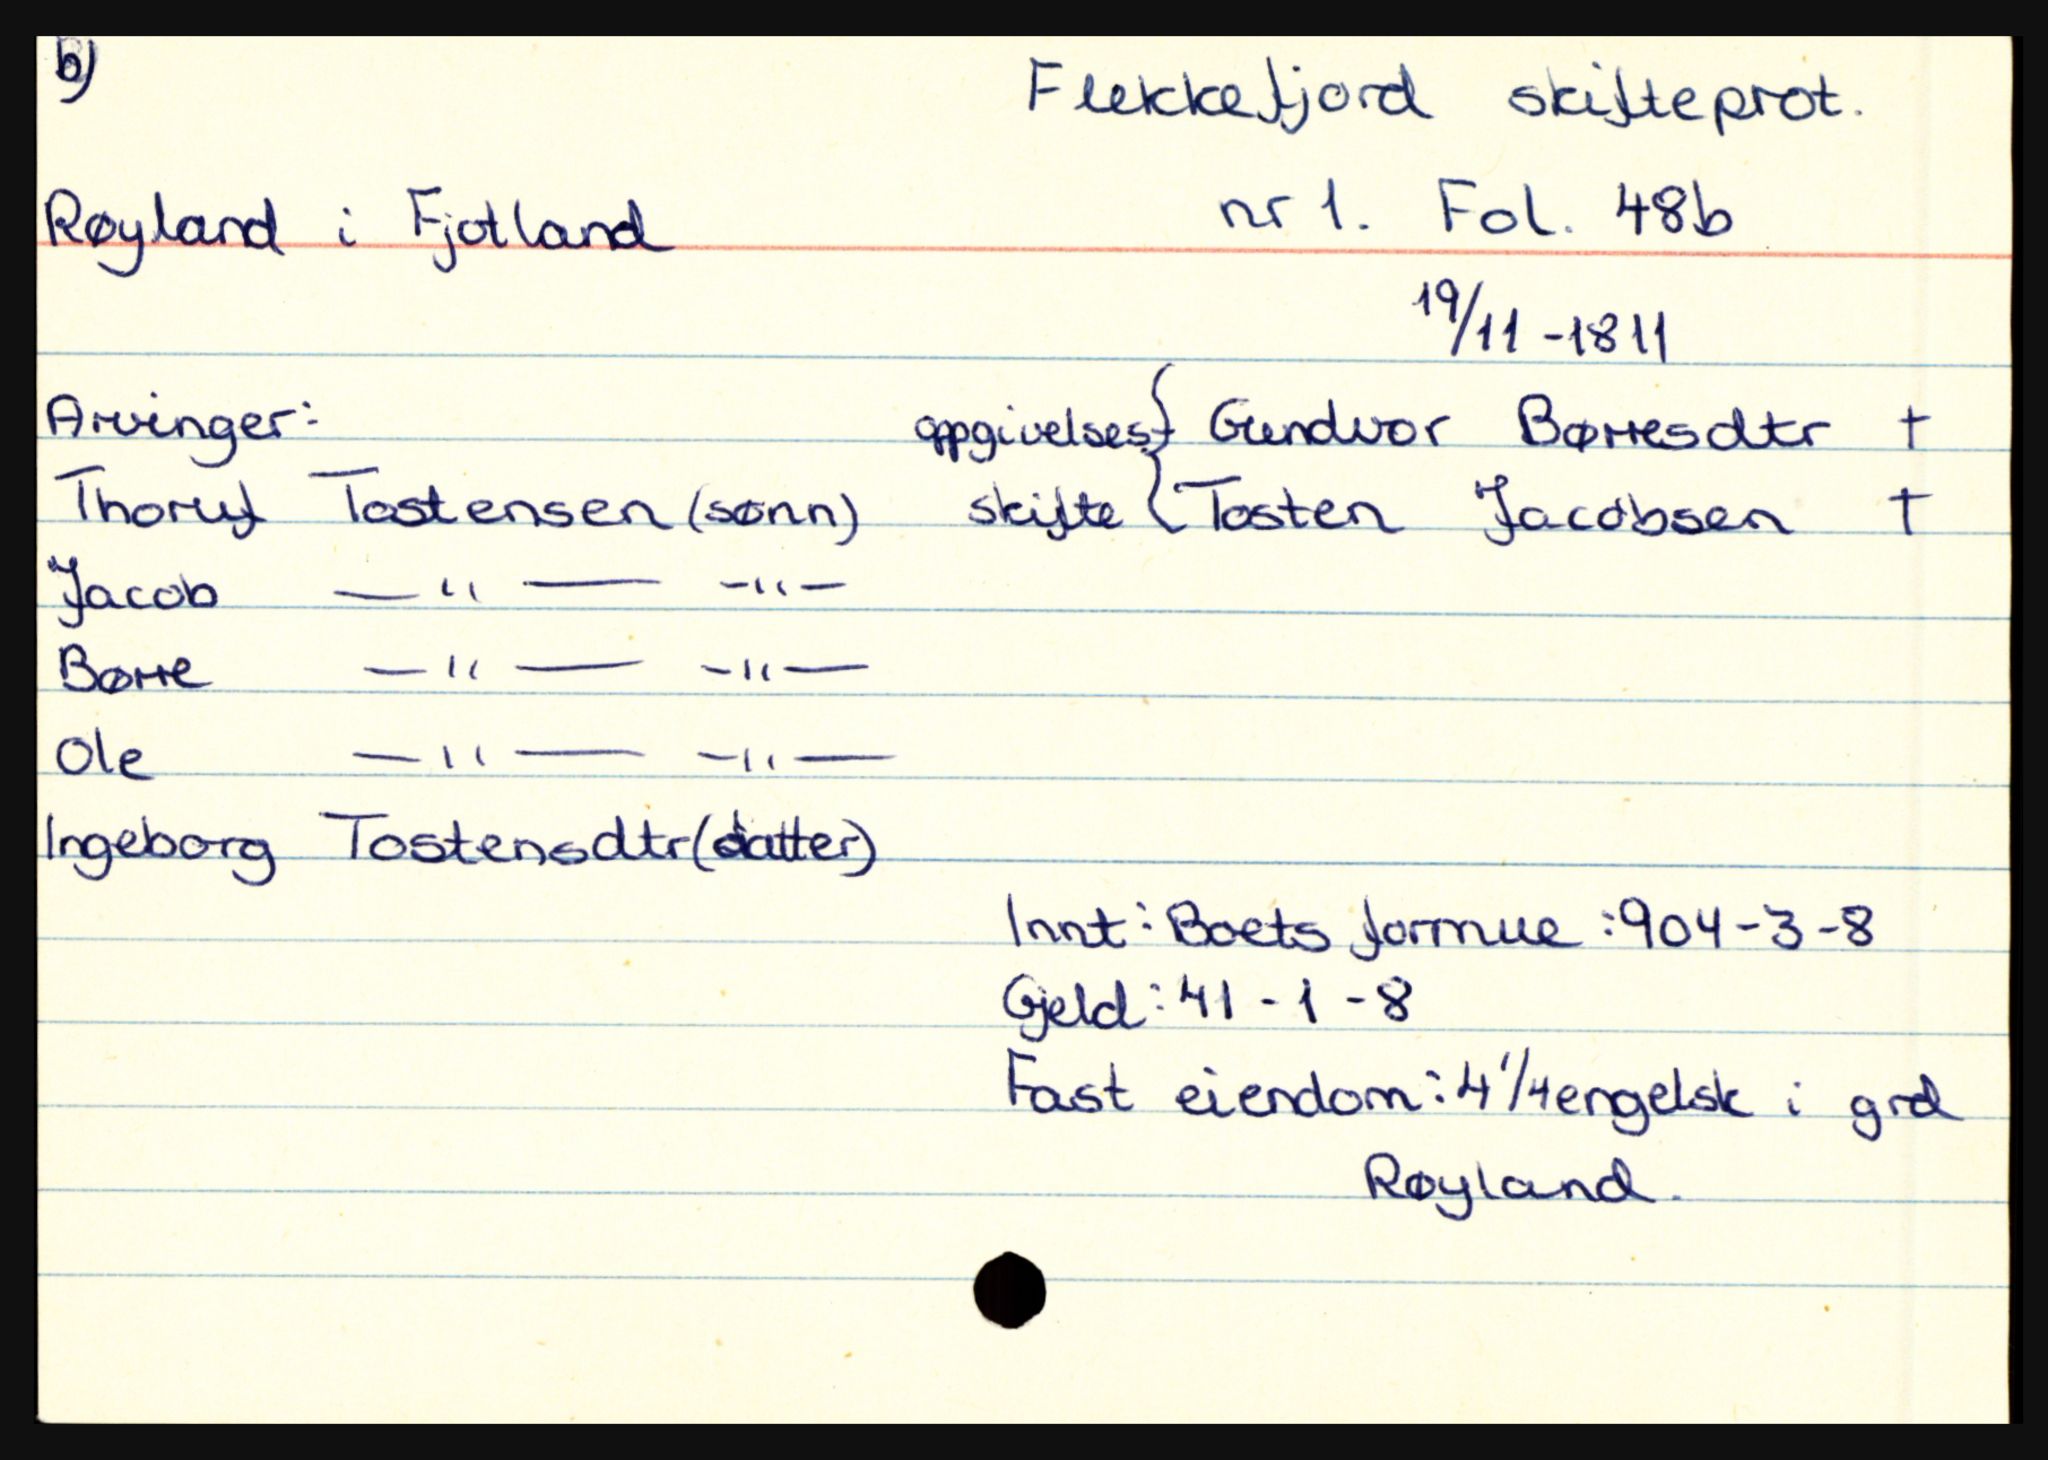 b)
Flekkefjord skifteprot.
Røyland i Fjotland
nr 1. Fol. 48b
19/11 -1811
Arvinger:
oppgivelses- { Gundvor Børresdtr †
Thoruf Tostensen (sønn)
skifte { Tosten Jacobsen †
Jacob — " — - " -
Børre — " — - " —
Ole — " — - " —
Ingeborg Tostensdtr (datter)
Innt: Boets formue: 904-3-8
Gjeld: 41-1-8
Fast eiendom: 4 1/4 engelsk i grd
Røyland.